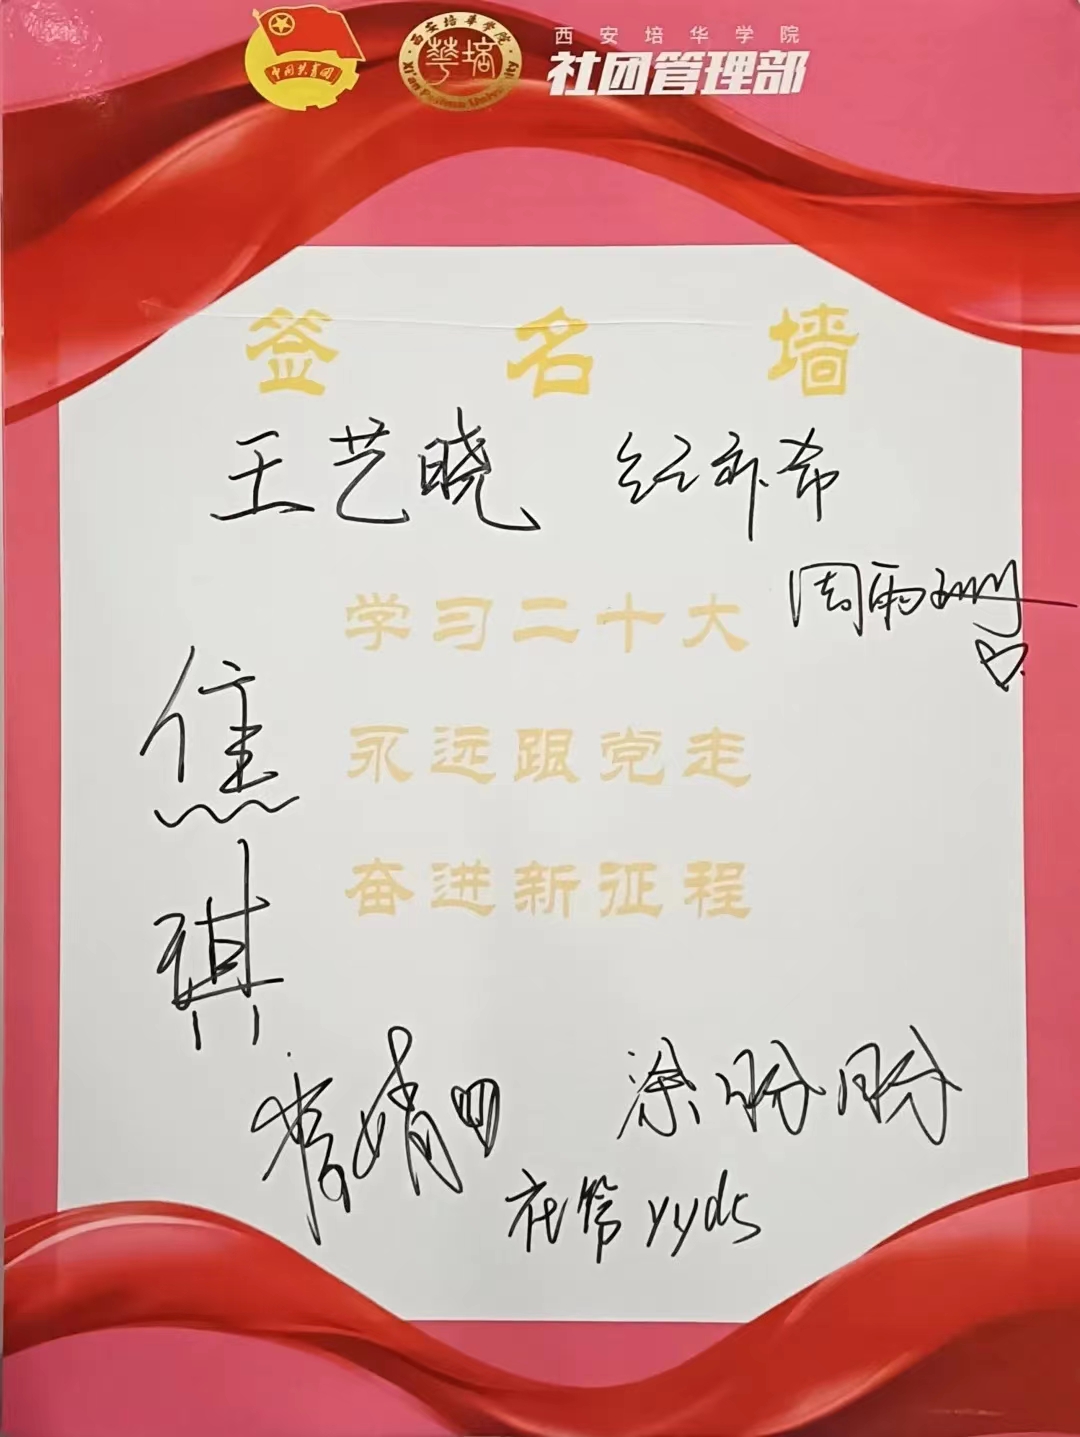 中国共青团
西安培华学院
華培
Xi'an Peihua University
西安培华学院
社团管理部
签名墙
王艺晓
周雨珊
学习二十大
永远跟党走
奋进新征程
焦
祺
涂盼盼
社管yyds